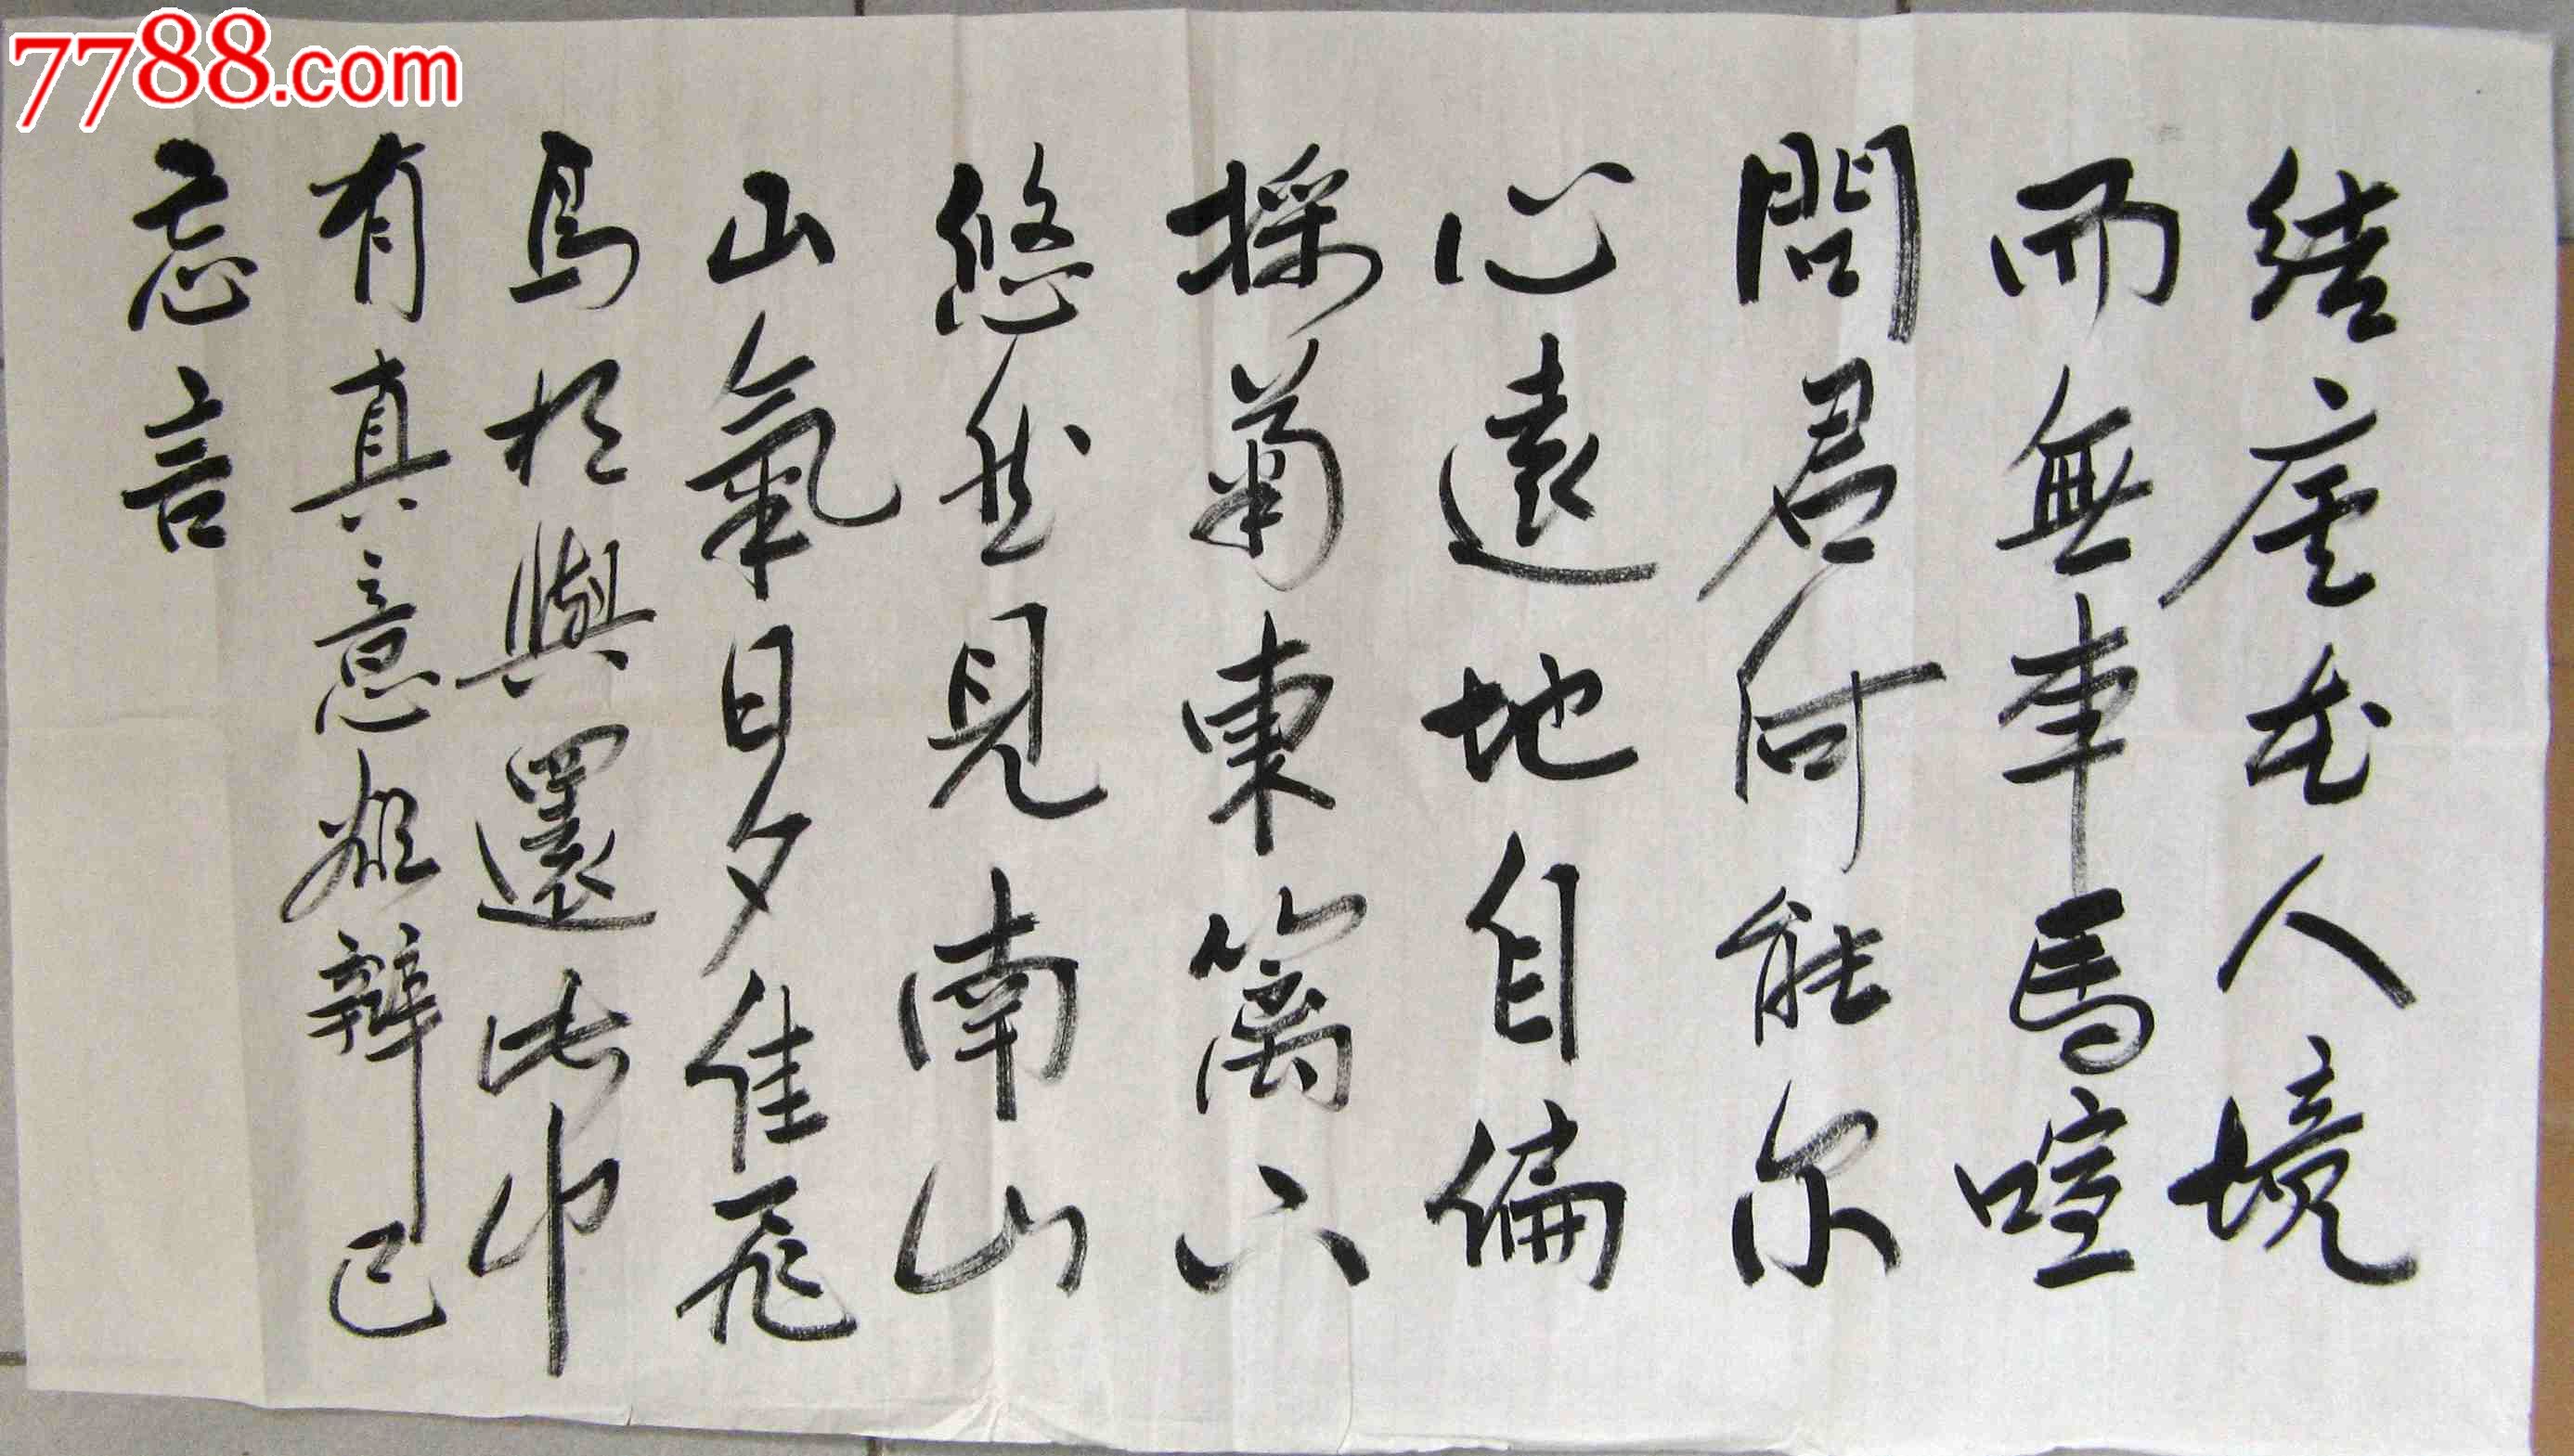 7788.com
結廬在人境
而無車馬喧
問君何能尔
心遠地自偏
採菊東篱下
悠然見南山
山氣日夕佳飛
鳥相與還此中
有真意欲辨已
忘言